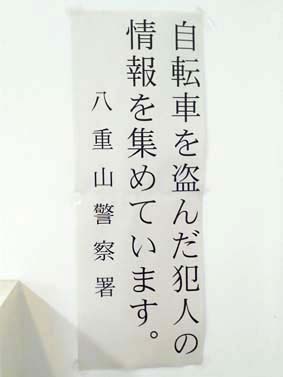 自転車を盗んだ犯人の
情報を集めています。
八重山警察署